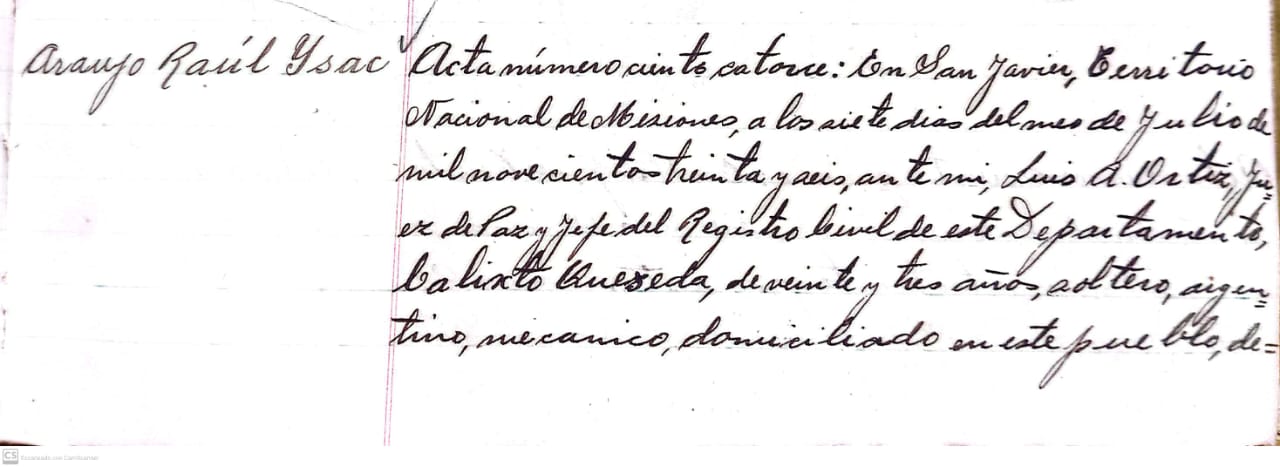 Araujo Raúl Ysac
Acta número ciento catorce: En San Javier, Territorio
Nacional de Misiones, a los siete dias del mes de Julio de
mil novecientos treinta y seis, ante mi, Luis A. Ortiz, Ju=
ez de Paz y Jefe del Registro Civil de este Departamento,
Calixto Queseda, de veinte y tres años, soltero, argen=
tino, mecanico, domiciliado en este pueblo, de=
CS Escaneado con CamScanner